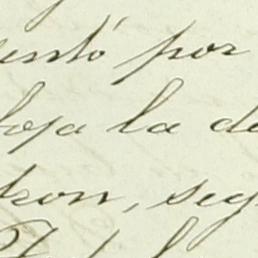 entó por
foja la de
tron, seg